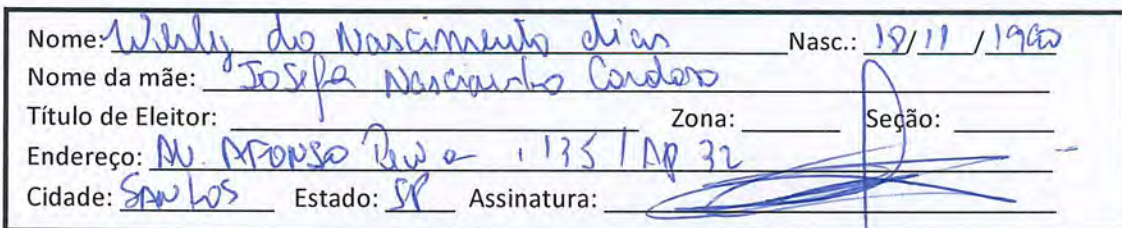 Nome: Wesly do Nascimento dias Nasc.: 18/11/1980
Nome da mãe: Josefa Nascimento Cardoso
Título de Eleitor: Zona: Seção:
Endereço: AV. AFONSO Pena 135 / AP 32
Cidade: SANTOS Estado: SP Assinatura: